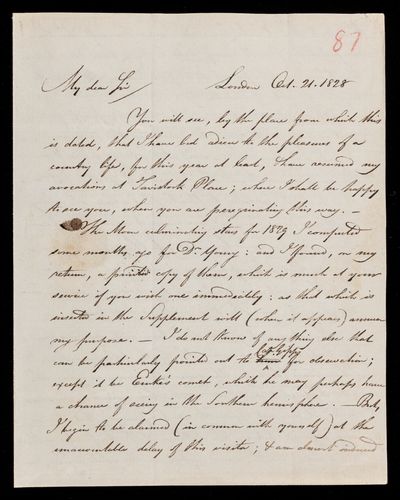 87
My dear Sir London Oct. 21. 1828
You will see, by the place from which this
is dated, that I have bid adieu to the pleasures of a
country life, for this year at least, & have resumed my
avocations at Tavistock Place; where I shall be happy
to see you, when you are peregrinating this way. —
The Moon culminating stars for 1829 I computed
some months ago for Dr. Young: and I found, on my
return, a printed copy of them, which is much at your
service if you wish one immediately: as that which is
inserted in the Supplement will (when it appears) answer
my purpose. — I do not know of any thing else that
can be particularly pointed out to Capt. Foster for observation;
except it be Encke's comet, which he may perhaps have
a chance of seeing in the Southern hemisphere. — But,
I begin to be alarmed (in common with yourself) at the
unaccountable delay of this visitor; & am almost induced